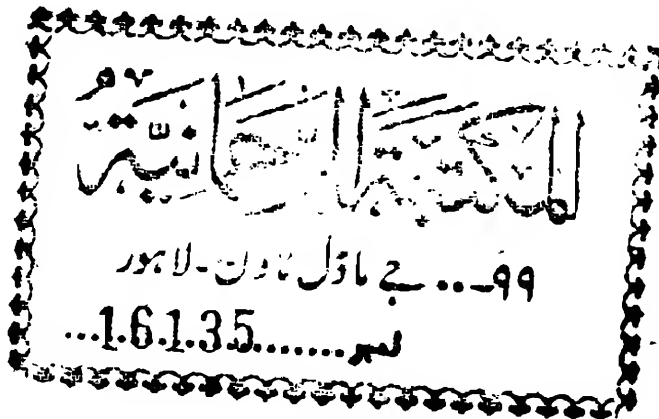 المکتبۃ الرحمانیۃ
۹۹۔۔۔ جے ماڈل ٹاؤن ۔ لاہور
نمبر.......1.6.1.3.5...